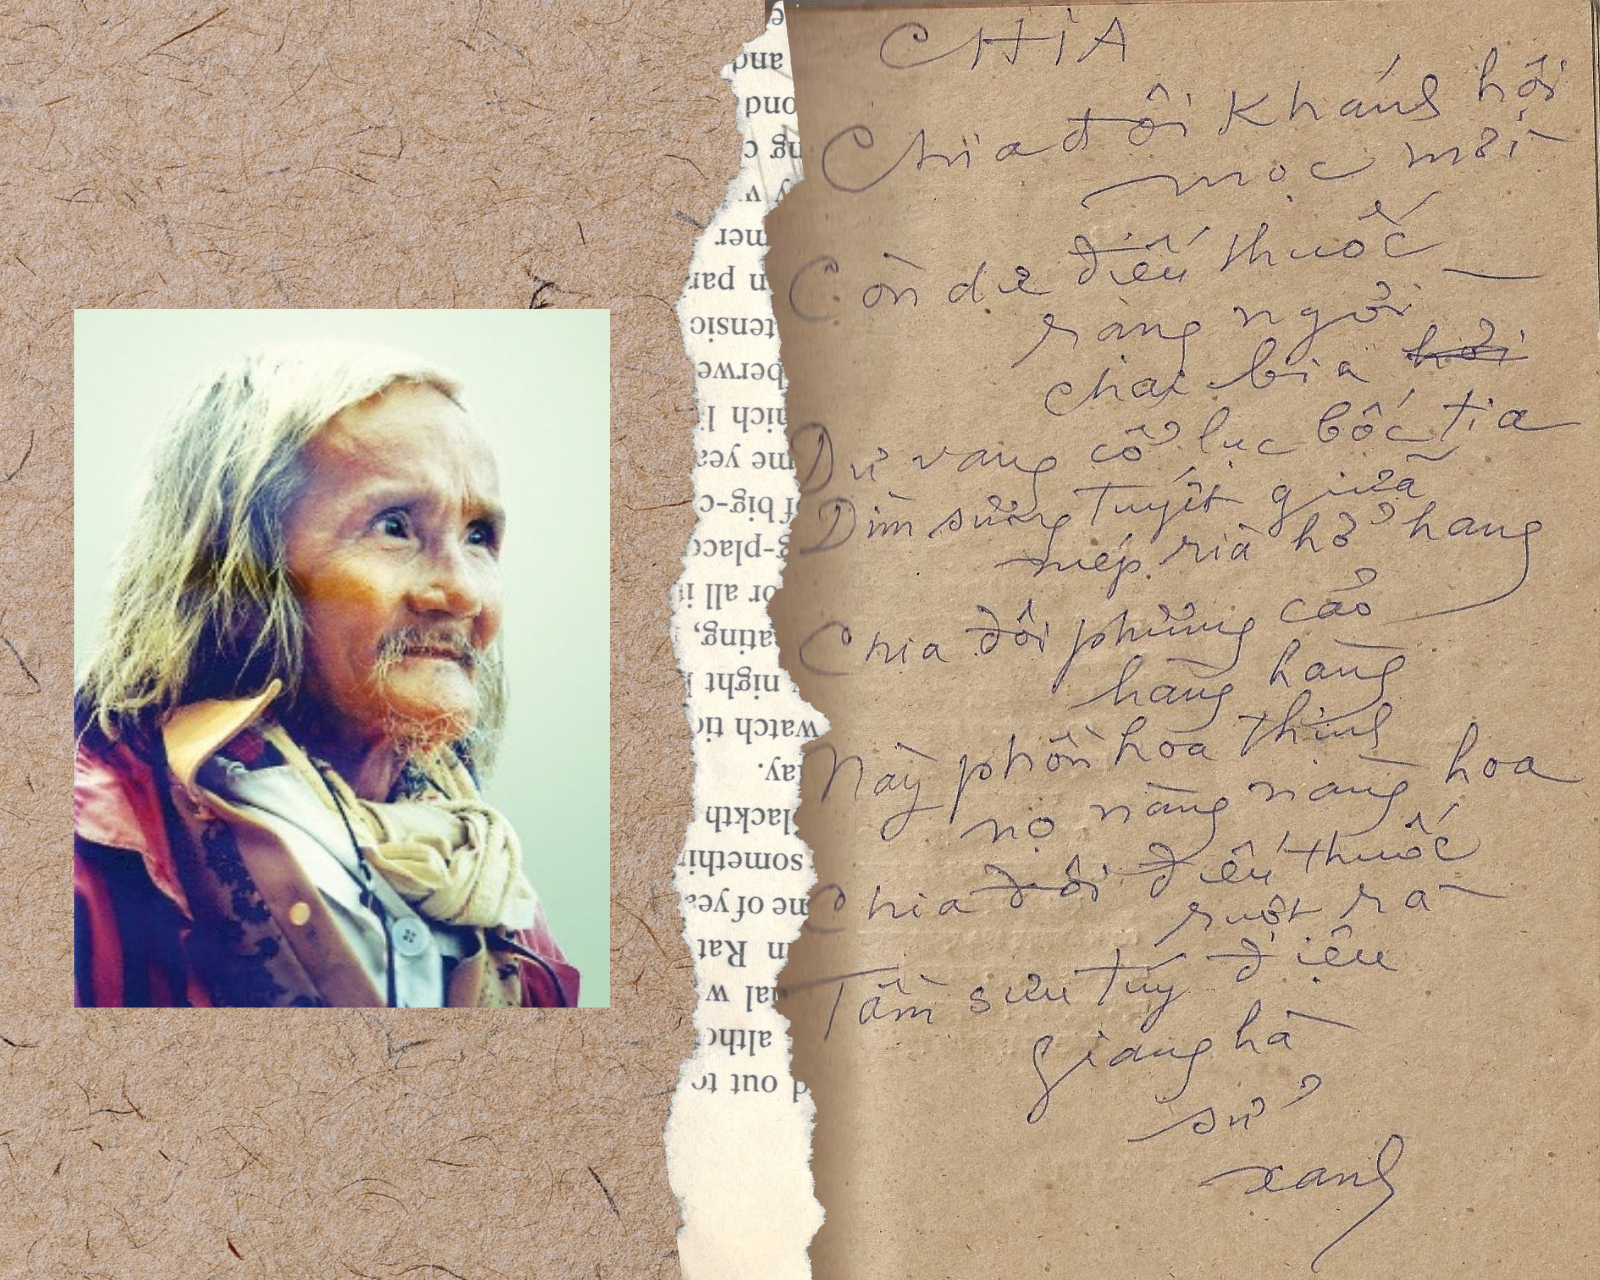 CHIA
Chia đôi Khánh hội
mọc mời
Còn dư điếu thuốc
ràng người
chai bia hơi
Dư vang cổ lục bốc tia
Dìm sương tuyết giữa
mép rìa hở hang
Chia đôi phừng cảo
hàng hàng
Này phồn hoa thinh
nọ nàng nàng hoa
Chia đôi điếu thuốc
ruột rà
Tầm sưu túy điệu
giang hà
sử
xanh
e
and
ond
ng c
y v
mer
n par
tensic
berwe
hich l
me yea
f big-c
g-place
or all i
ating,
night
watch tic
ay.
lackth
somethin
me of yea
n Rat
al w
altho
d out to